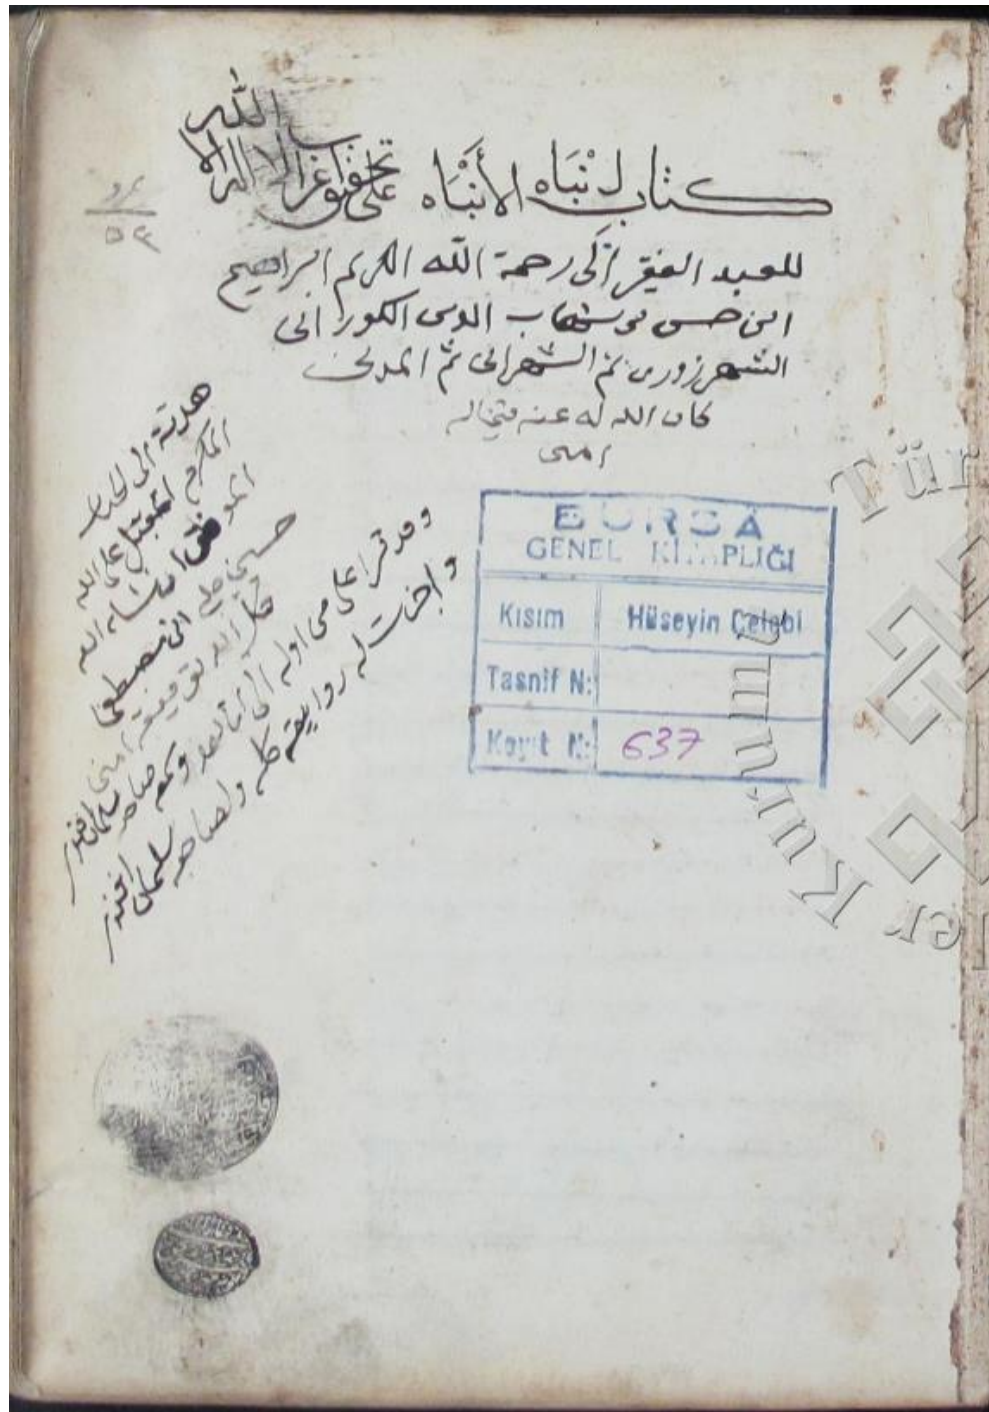 كتاب إنباه الأنباه على تحقيق إعراب لا إله إلا الله
للعبد الفقير إلى رحمة الله الكريم ابراهيم
ابن حسن بن شهاب الدين الكوراني
الشهرزوري ثم الشهراني ثم المدني
كان الله له عنه في كل حال
امين
هدية الى الجناب
المكرم المقبل على الله
الموفق ان شاء الله
حسين چلبي ابن مصطفى
الله توفيقه امين
وقد قرا على من اوله الى اما بعد وسمعه صاحبه سليمان افندي
واجزت له روايته كله ولصاحبه سليمان افندي
BURSA
GENEL KİTAPLIĞI
Kısım Hüseyin Çelebi
Tasnif N:
Kayıt N: 637